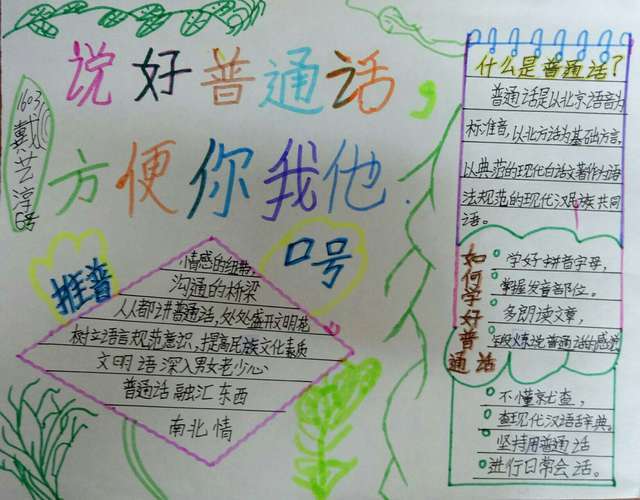 说好普通话,
方便你我他.
1603
戴艺淳
6号
推普
口号
情感的纽带,
沟通的桥梁
人人都讲普通话,处处盛开文明花
树立语言规范意识,提高民族文化素质
文明 语深入男女老少心
普通话 融汇东西
南北情
什么是普通话?
普通话是以北京语音为
标准音,以北方话为基础方言,
以典范的现代白话文著作为语
法规范的现代汉民族共同
语。
如何学好普通话
学好拼音字母,
掌握发音部位。
多朗读文章,
锻炼说普通话的感觉
不懂就查,
查现代汉语辞典。
坚持用普通话
进行日常会话。